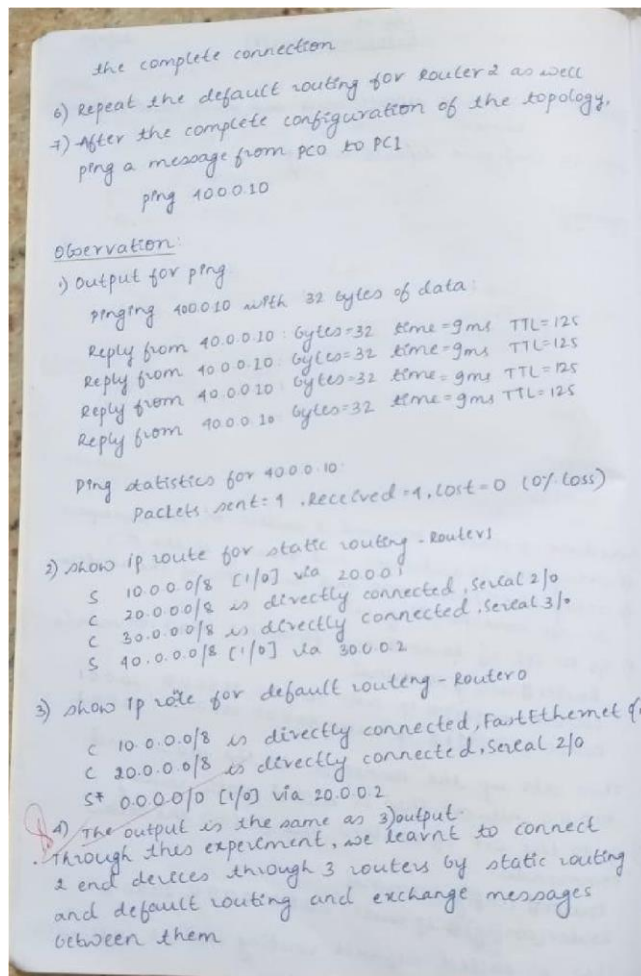 the complete connection
6) Repeat the default routing for Router 2 as well
7) After the complete configuration of the topology,
ping a message from PC0 to PC1
ping 40.0.0.10
Observation:
1) Output for ping
Pinging 40.0.0.10 with 32 bytes of data:
Reply from 40.0.0.10: bytes=32 time=9ms TTL=125
Reply from 40.0.0.10: bytes=32 time=9ms TTL=125
Reply from 40.0.0.10: bytes=32 time=9ms TTL=125
Reply from 40.0.0.10: bytes=32 time=9ms TTL=125
Ping statistics for 40.0.0.10:
Packets sent=4, Received=4, Lost=0 (0% loss)
2) show ip route for static routing - Router1
S 10.0.0.0/8 [1/0] via 20.0.0.1
C 20.0.0.0/8 is directly connected, Serial 2/0
C 30.0.0.0/8 is directly connected, Serial 3/0
S 40.0.0.0/8 [1/0] via 30.0.0.2
3) show ip route for default routing - Router0
C 10.0.0.0/8 is directly connected, FastEthernet
C 20.0.0.0/8 is directly connected, Serial 2/0
S* 0.0.0.0/0 [1/0] via 20.0.0.2
4) The output is the same as 3) output.
Through this experiment, we learnt to connect
2 end devices through 3 routers by static routing
and default routing and exchange messages
between them